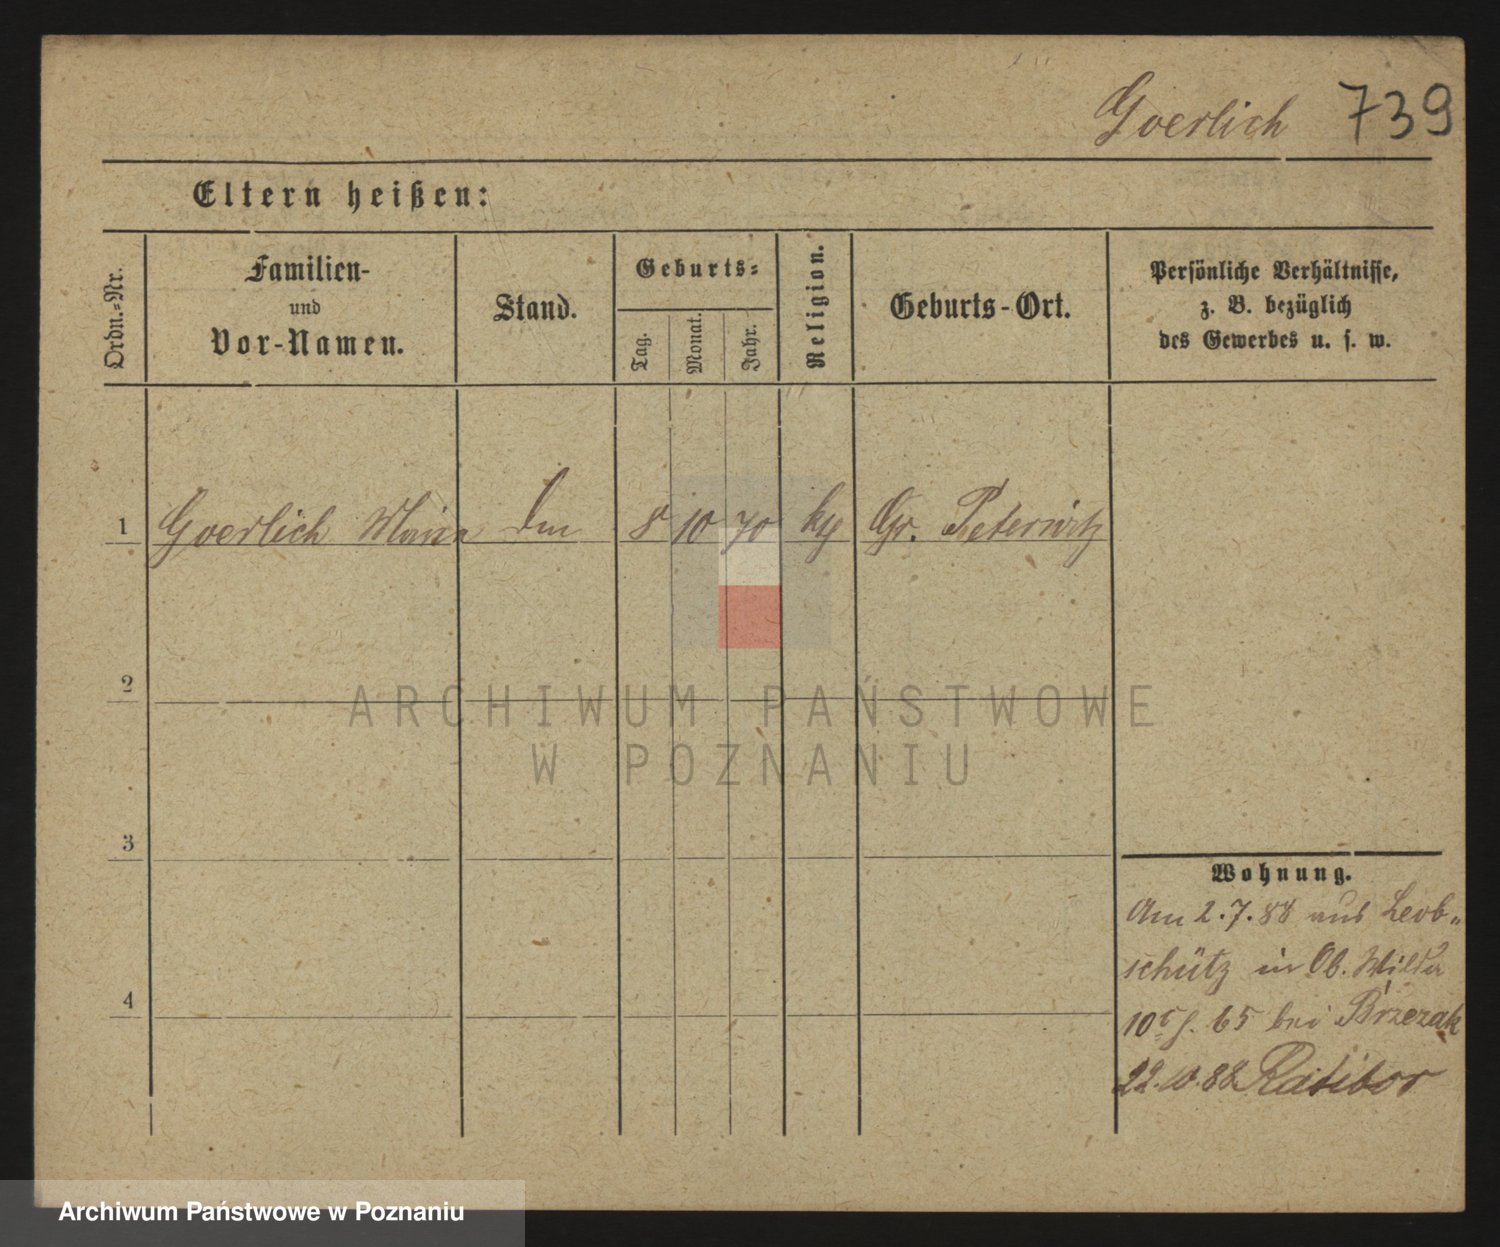 Goerlich 739
Eltern heißen:
Ordn.-Nr.
Familien-
und
Vor-Namen.
Stand.
Geburts-
Tag.
Monat.
Jahr.
Religion.
Geburts-Ort.
Persönliche Verhältnisse,
z. B. bezüglich
des Gewerbes u. s. w.
1 Goerlich 8 10 70 Gr. Peterwitz
2
3
4
Wohnung.
Am 2.7.88 aus Leob-
schütz in Ob. Wilda
65 bei Brzezak
22.10.88 Ratibor
ARCHIWUM PAŃSTWOWE
W POZNANIU
Archiwum Państwowe w Poznaniu